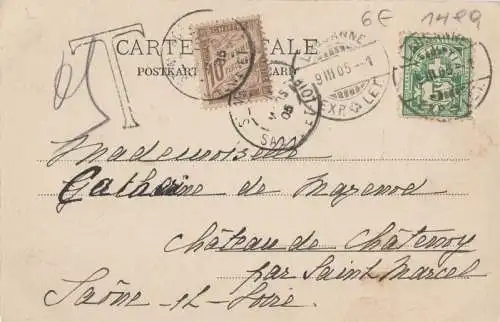 6E 1489
CARTE POSTALE
POSTKARTE CARD
10
LAUSANNE
9 III 05 - 1
EXP. LET.
HELVETIA
5
T
Mademoiselle
Catherine de Mazenod
Château de Châtenoy
par Saint Marcel
Saône-et-Loire